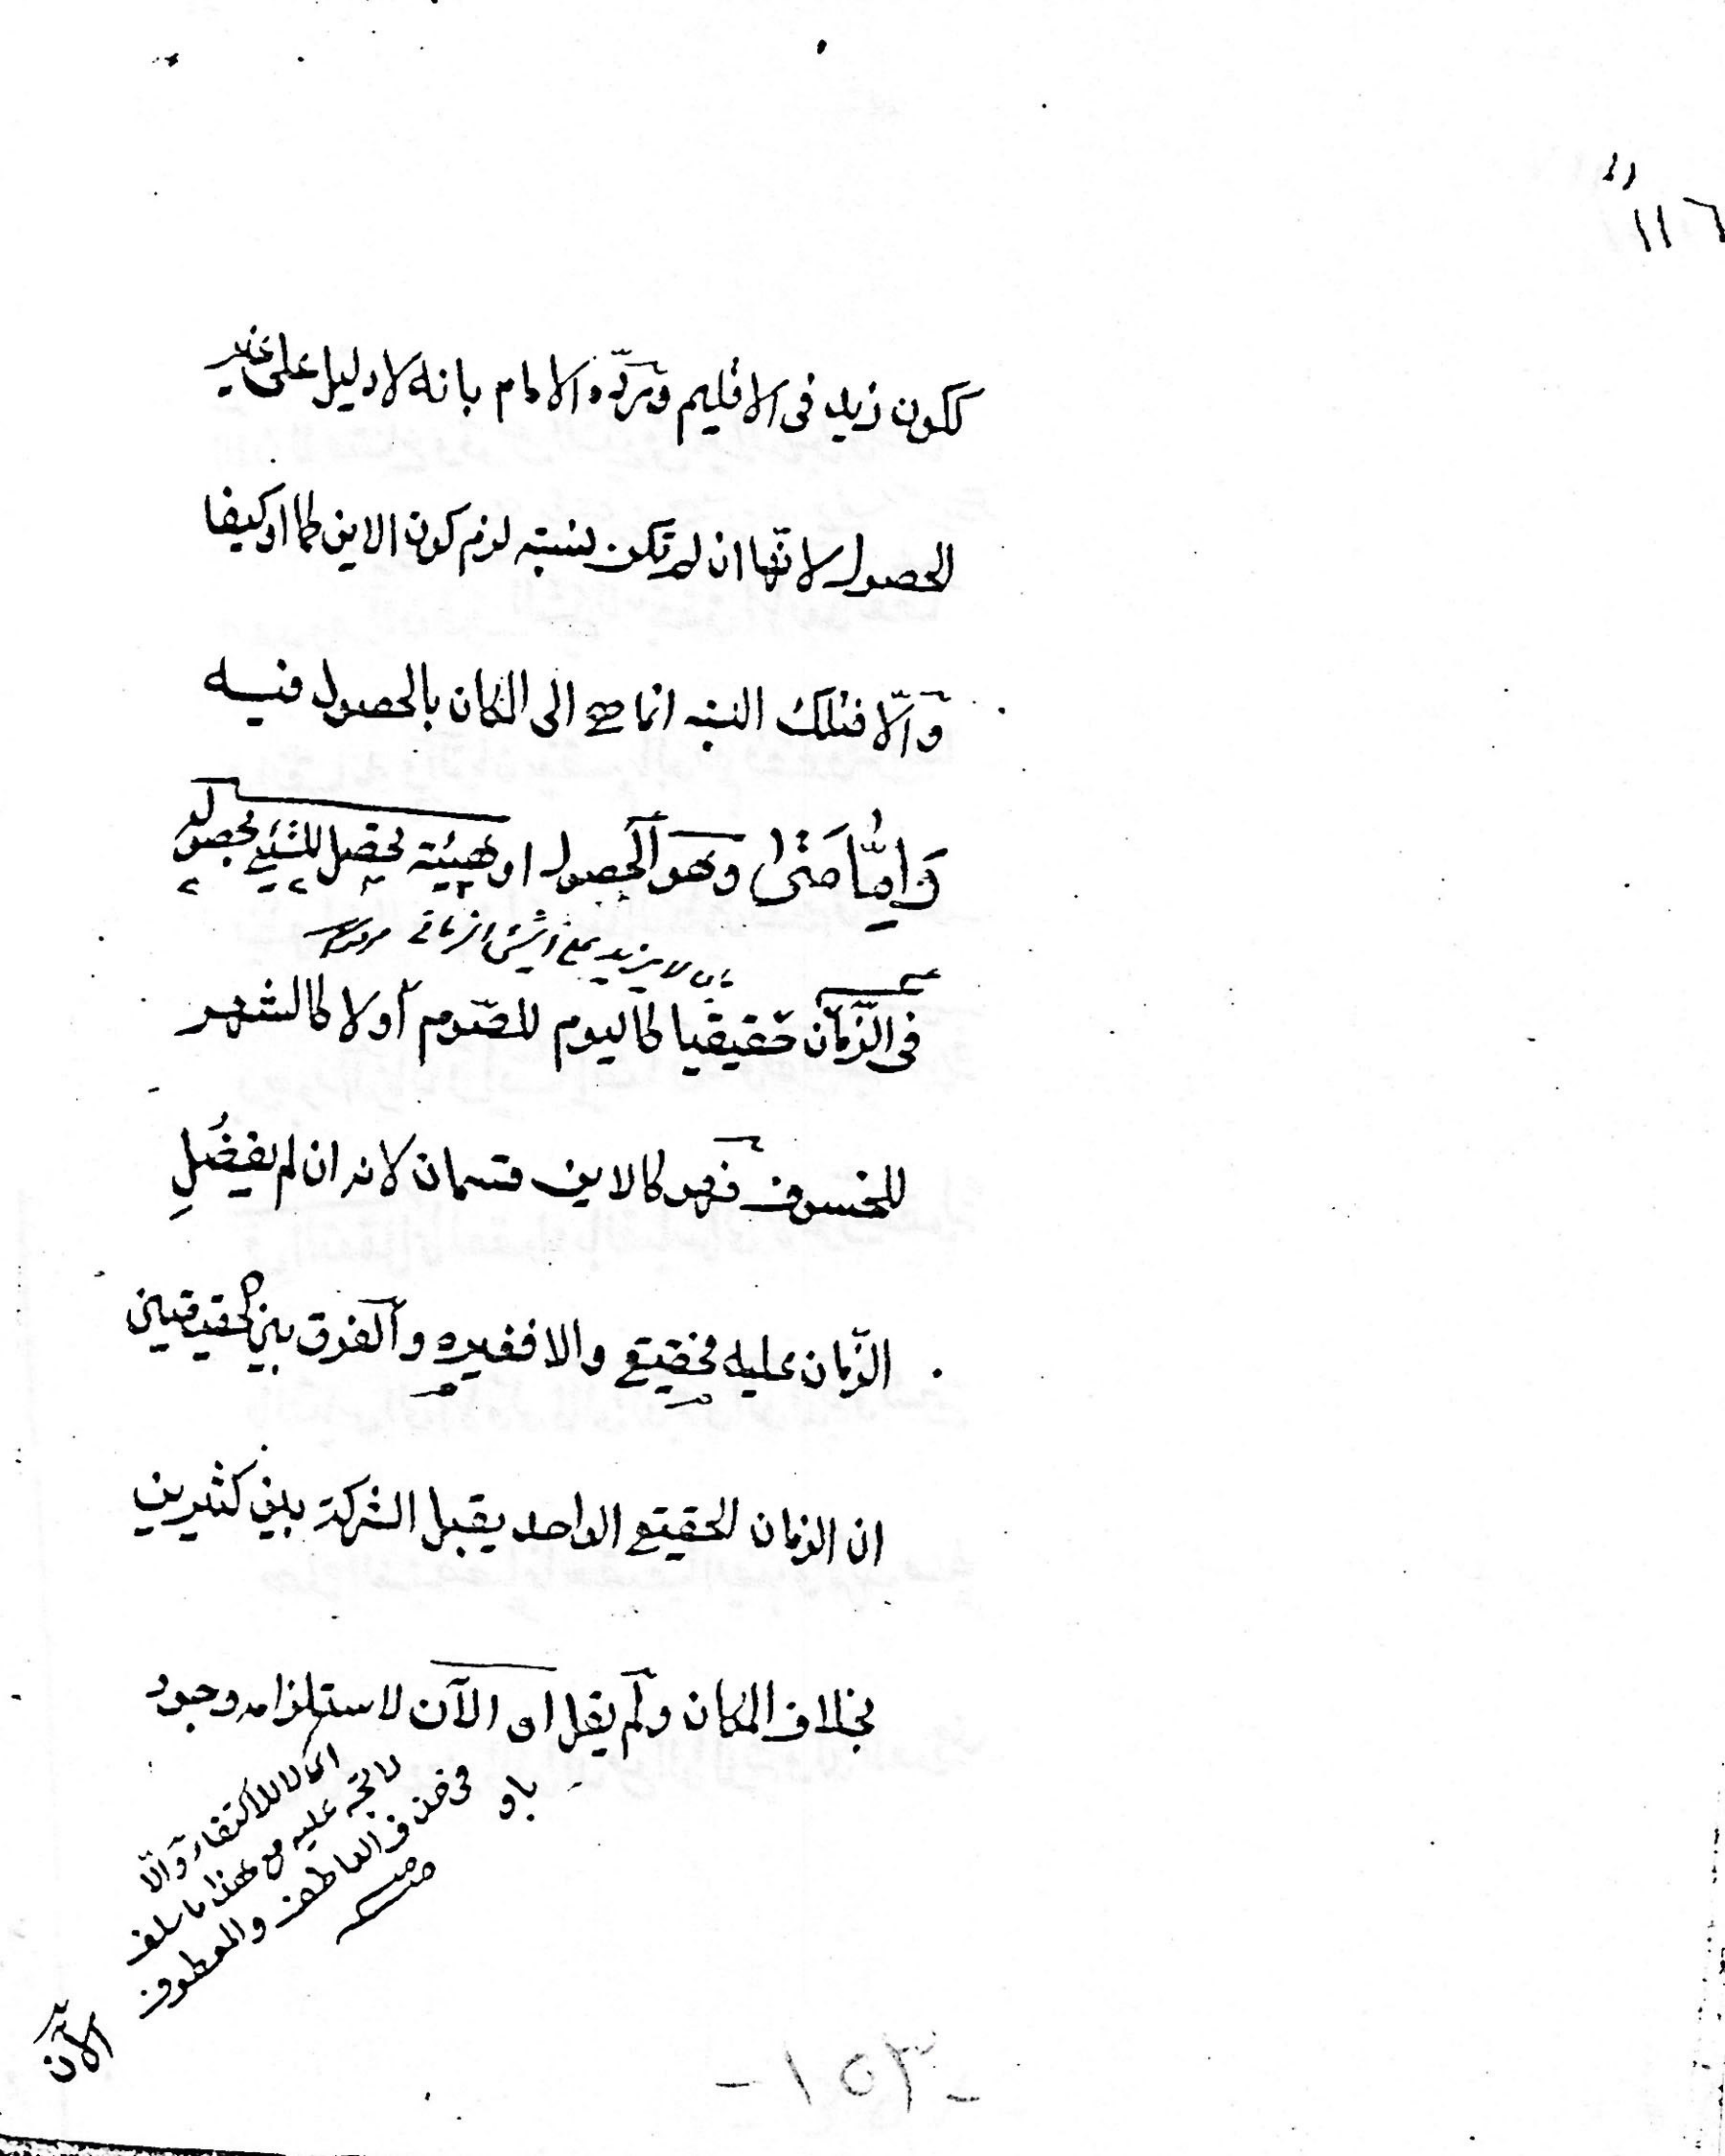 ١١٦
ككون زيد فى الاقليم وردّه الامام بانه لا دليل على غير
الحصول لانها ان لم تكن نسبته لزم كون الاين كما او كيفا
والّا فتلك النسبه انما هى الى المكان بالحصول فيه
وَامّا مَتٰى وهو الحصول او هيئة تحصل للشيئ بحصوله
بان لا يزيد على الشئ الزمانى
فى الزّمان حقيقيا كاليوم للصّوم أو لا كالشهر
للخسوف فهو كالاين قسمان لانه ان لم يفضُل
الزّمان عليه فحقيقى والا فغيره والفرق بين الحقيقيين
ان الزمان الحقيقى الواحد يقبل الشركة بين كثيرين
بخلاف المكان ولم يقل او الآن لاستلزامه وجود
باو
اى لا للاكتفاء والّا
لاتجه عليه مع هذا ما سلف
فى حذف العاطف والمعطوف
الآن
- ١٥٣ -